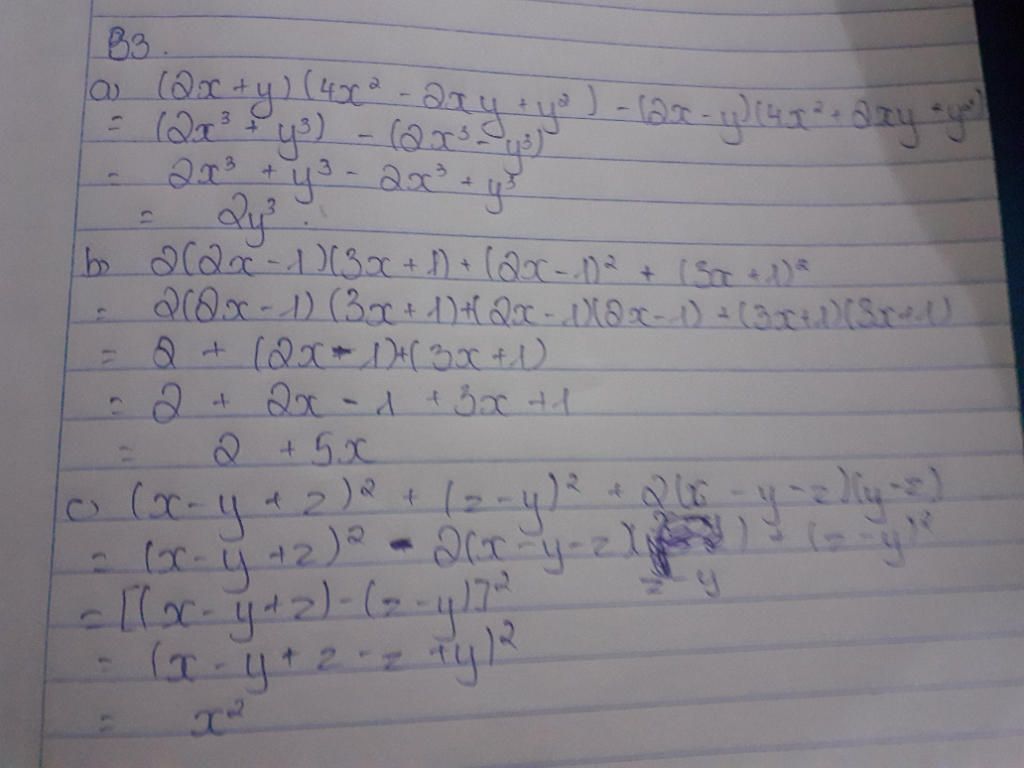 B3.
a) (2x + y)(4x² - 2xy + y²) - (2x - y)(4x² + 2xy + y²)
= (2x³ + y³) - (2x³ - y³)
= 2x³ + y³ - 2x³ + y³
= 2y³.
b) 2(2x - 1)(3x + 1) + (2x - 1)² + (3x + 1)²
= 2(2x - 1)(3x + 1) + (2x - 1)(2x - 1) + (3x + 1)(3x + 1)
= 2 + (2x - 1) + (3x + 1)
= 2 + 2x - 1 + 3x + 1
= 2 + 5x
c) (x - y + z)² + (z - y)² + 2(x - y - z)(y - z)
= (x - y + z)² - 2(x - y - z)( ) + (z - y)²
z - y
= [(x - y + z) - (z - y)]²
= (x - y + z - z + y)²
= x²